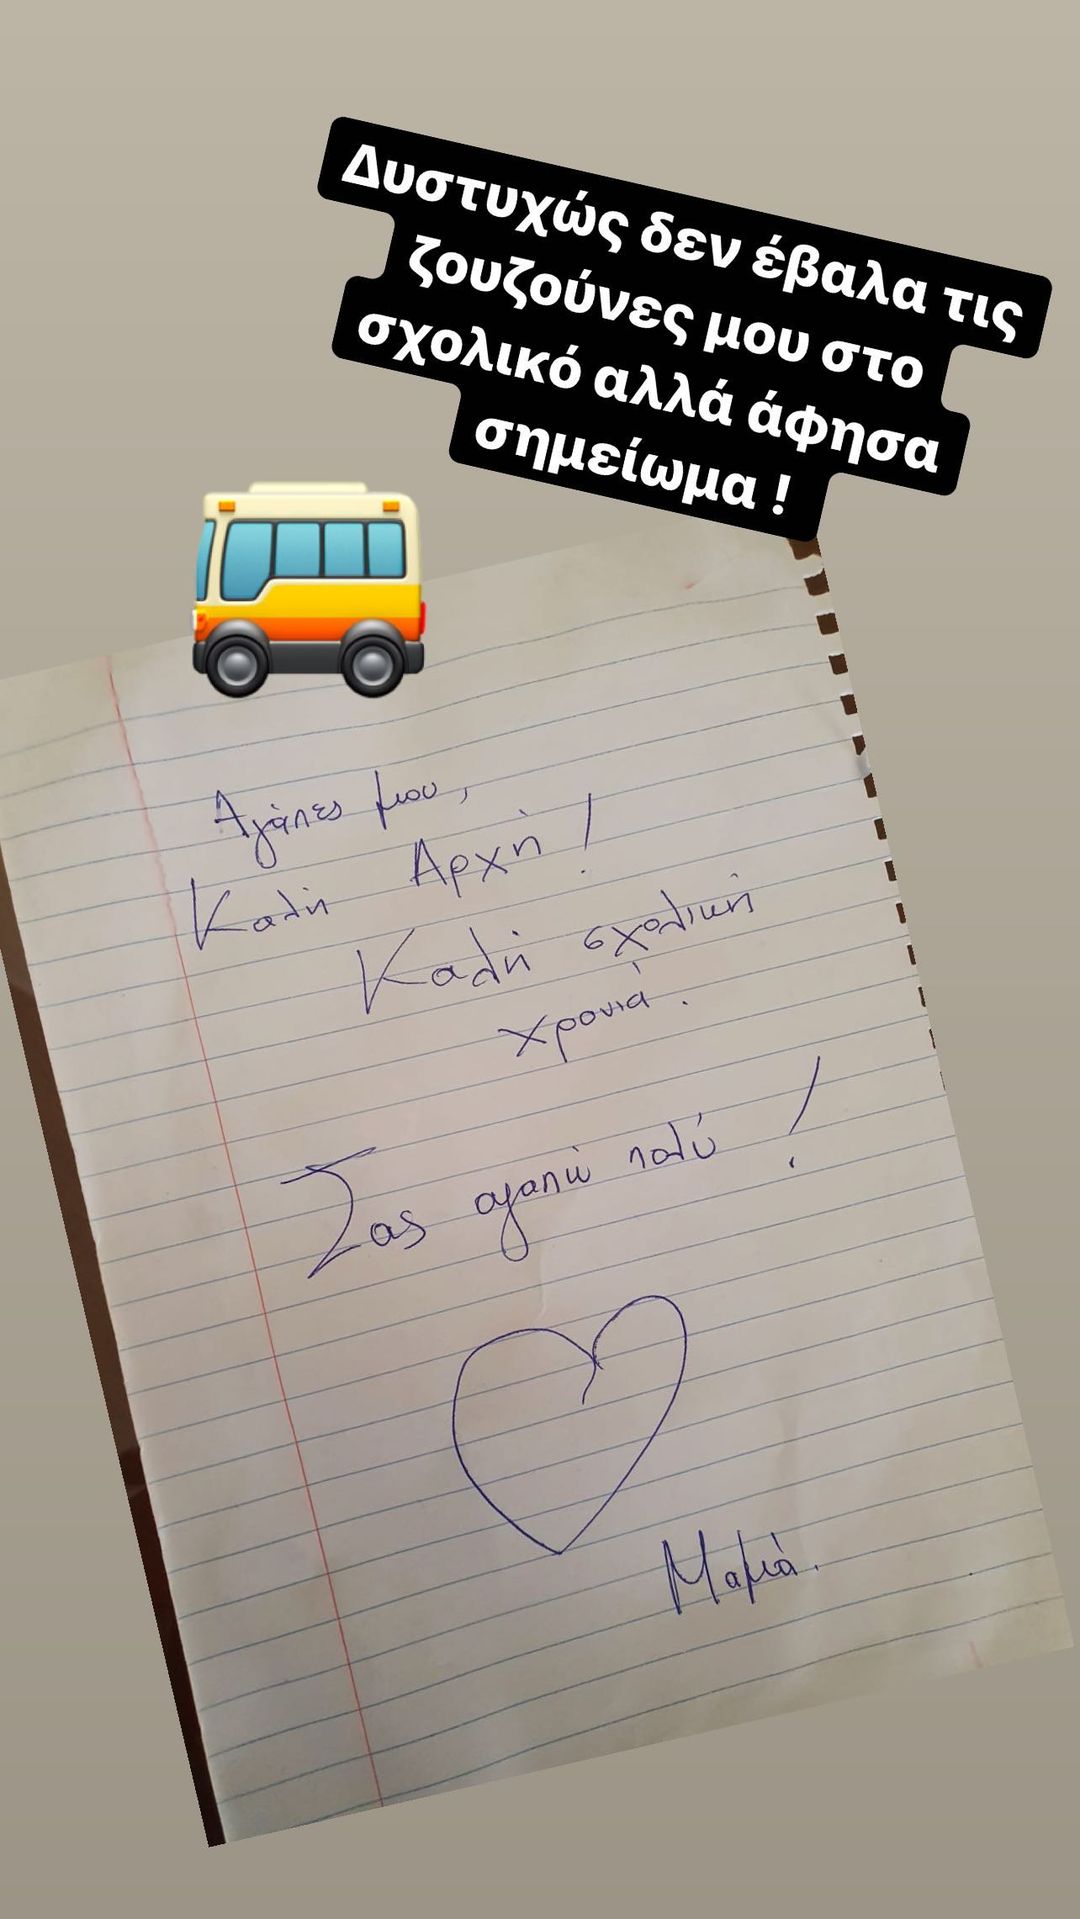 Δυστυχώς δεν έβαλα τις
ζουζούνες μου στο
σχολικό αλλά άφησα
σημείωμα !
Αγάπες μου,
Καλή Αρχή !
Καλή σχολική
χρονιά.
Σας αγαπώ πολύ !
Μαμά.